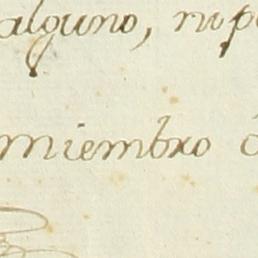 alguno, ni p
miembro